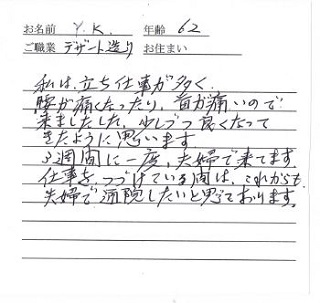 お名前 Y.K. 年齢 62
ご職業 デザート造り お住まい
私は、立ち仕事が多く、
腰が痛くなったり、首が痛いので
来ましたした、少しづつ良くなって
きたように思います
3週間に一度、夫婦で来てます、
仕事を、つづけている間は、これからも
夫婦で通院したいと思っております。